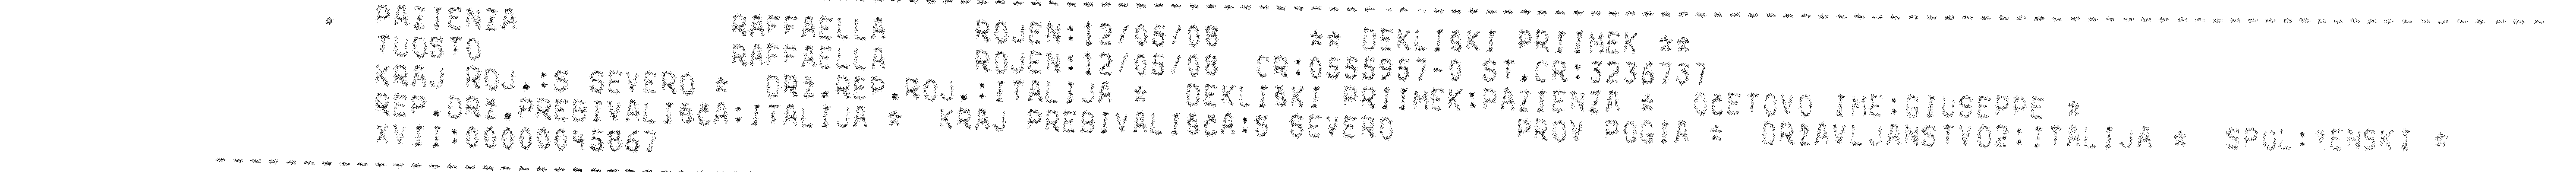 . PAZIENZA RAFFAELLA ROJEN:12/05/08 ** DEKLIŠKI PRIIMEK **
TUOSTO RAFFAELLA ROJEN:12/05/08 CR:0555957-0 ST.CR:3236737
KRAJ ROJ.:S SEVERO * DRŽ.REP.ROJ.:ITALIJA * DEKLIŠKI PRIIMEK:PAZIENZA * OČETOVO IME:GIUSEPPE *
REP.DRŽ.PREBIVALIŠČA:ITALIJA * KRAJ PREBIVALIŠČA:S SEVERO PROV POGIA * DRŽAVLJANSTVO2:ITALIJA * SPOL:ŽENSKI *
XVII:00000045867